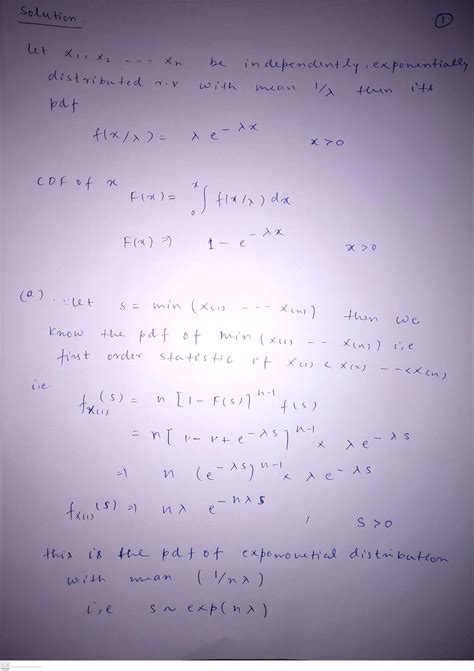 Solution.
①
Let X₁, X₂ --- Xn be independently, exponentially
distributed r.v with mean 1/λ then its
pdf
f(x/λ) = λ e^{-λx} x>0
CDF of x
F(x) = ∫₀ˣ f(x/λ) dx
F(x) ⇒ 1 - e^{-λx} x>0
(a) ∵ Let s = min (X(1) --- X(n)) then we
know the pdf of min (X(1) -- X(n)) i,e
first order statistic if X(1) < X(2) --<X(n)
i.e.
f_{X(1)}(s) = n [1 - F(s)]^{n-1} f(s)
= n [1-1+e^{-λs}]^{n-1} × λe^{-λs}
⇒ n (e^{-λs})^{n-1} × λe^{-λs}
f_{X(1)}(s) ⇒ nλ e^{-nλs} , s>0
this is the pdf of exponential distribution
with mean (1/nλ)
i,e s ~ exp(nλ)